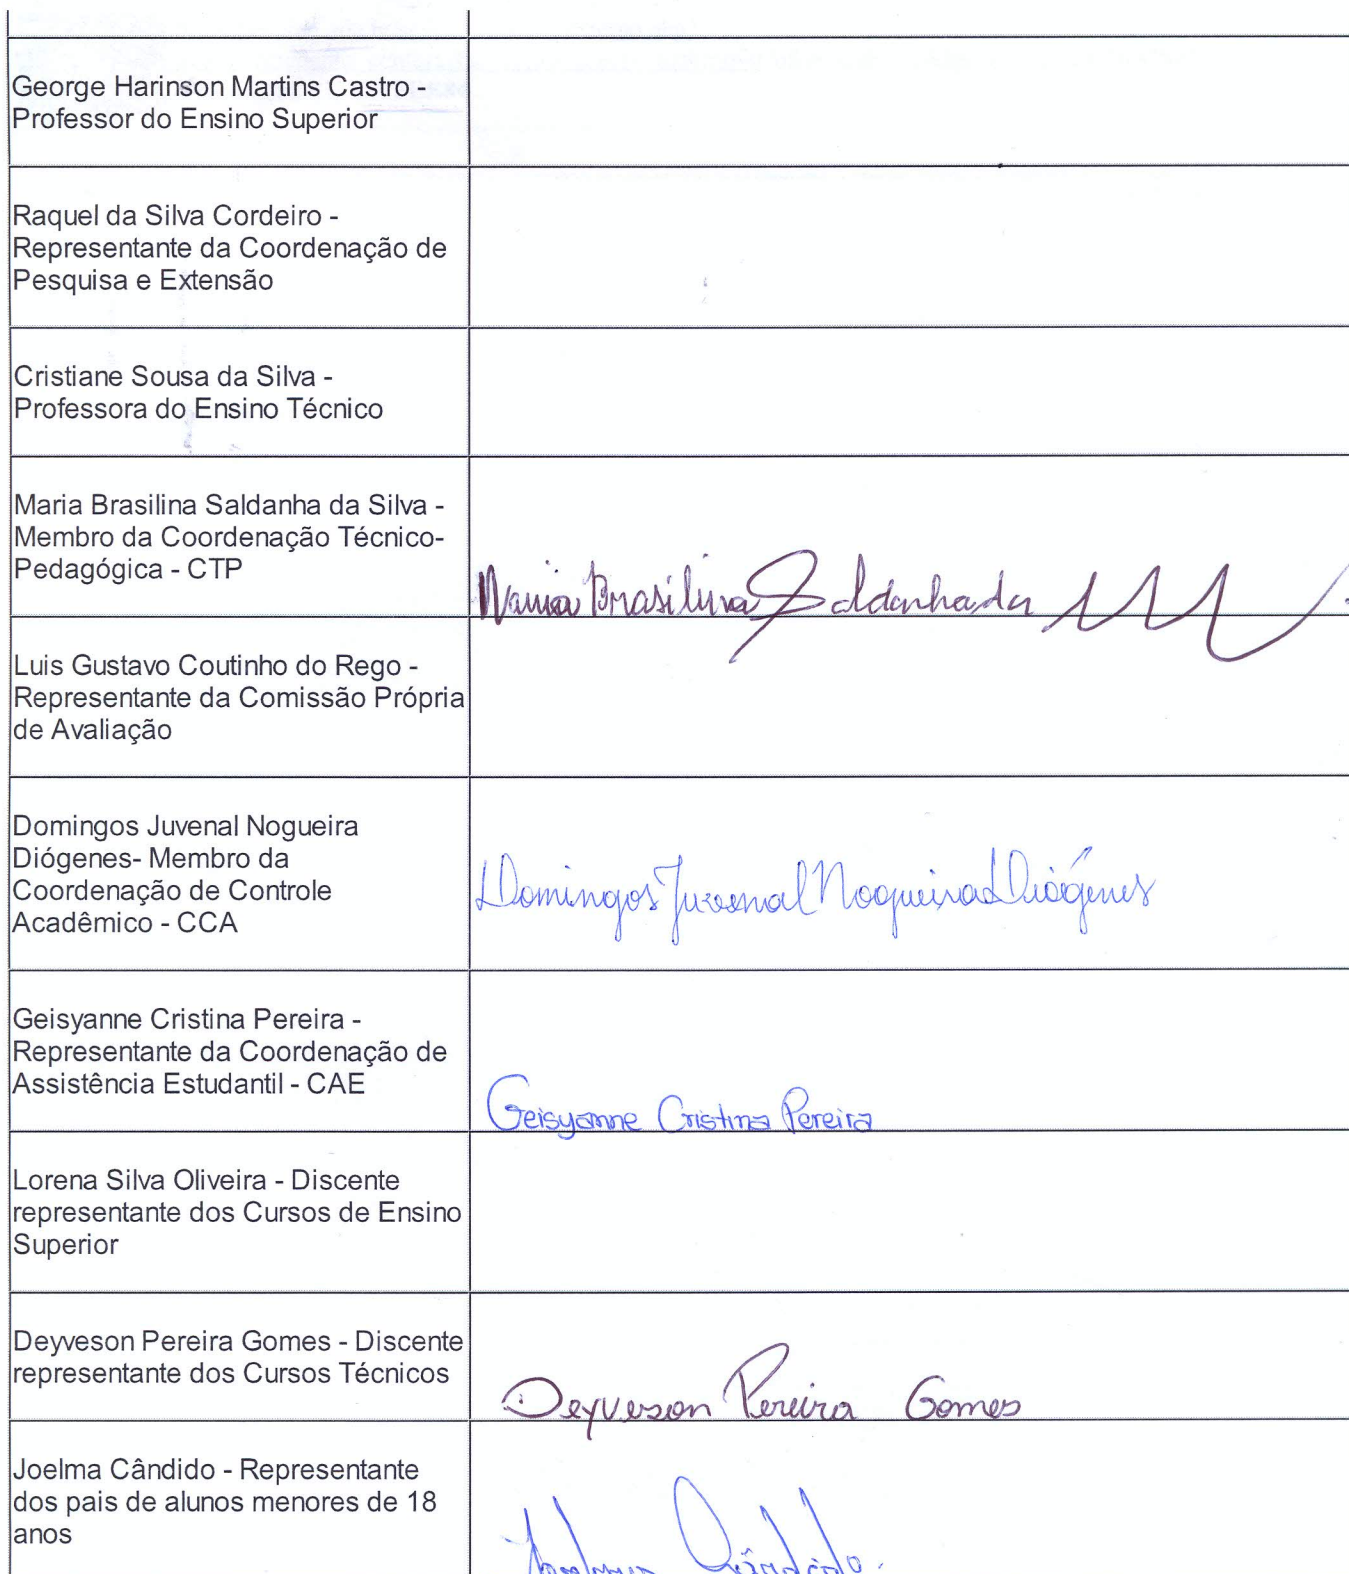 George Harinson Martins Castro -
Professor do Ensino Superior
Raquel da Silva Cordeiro -
Representante da Coordenação de
Pesquisa e Extensão
Cristiane Sousa da Silva -
Professora do Ensino Técnico
Maria Brasilina Saldanha da Silva -
Membro da Coordenação Técnico-
Pedagógica - CTP
Maria Brasilina Saldanha da
Luis Gustavo Coutinho do Rego -
Representante da Comissão Própria
de Avaliação
Domingos Juvenal Nogueira
Diógenes- Membro da
Coordenação de Controle
Acadêmico - CCA
Domingos Juvenal Nogueira Diógenes
Geisyanne Cristina Pereira -
Representante da Coordenação de
Assistência Estudantil - CAE
Geisyanne Cristina Pereira
Lorena Silva Oliveira - Discente
representante dos Cursos de Ensino
Superior
Deyveson Pereira Gomes - Discente
representante dos Cursos Técnicos
Deyveson Pereira Gomes
Joelma Cândido - Representante
dos pais de alunos menores de 18
anos
Joelma Cândido